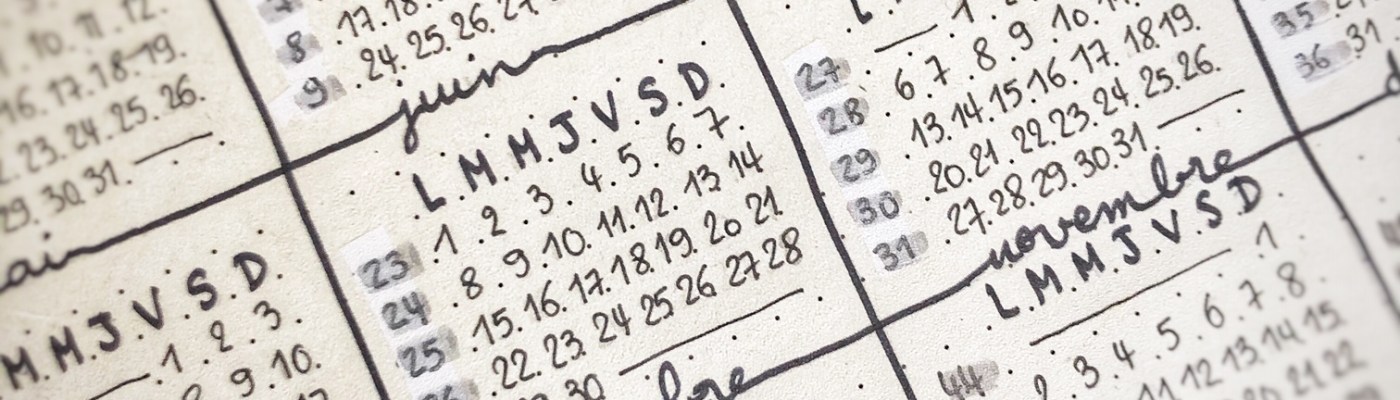 10. 11. 12.
16. 17. 18. 19.
23. 24. 25. 26.
29. 30. 31.
M. M. J. V. S. D.
1. 2. 3.
9. 10.
17
8 .17. 18.
9 .24. 25. 26. 27
juin
L. M. M. J. V. S. D.
23 .1 .2 .3 .4. 5. 6. 7.
24 .8. 9. 10. 11. 12. 13. 14
25 .15. 16. 17. 18. 19. 20 21
26 .22. 23. 24 25 26 27 28
30
bre
27 1
28 6. 7. 8. 9. 10. 11.
29 .13. 14. 15. 16. 17. 18. 19.
30 .20. 21. 22. 23. 24. 25. 26.
31 .27. 28. 29. 30. 31.
novembre
L. M. M. J. V. S. D.
1
44 2. 3. 4. 5. 6. 7. 8.
11 12 13 14 15
20 21 22
35
36 31